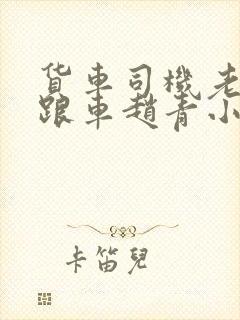 货車司機老
跟車趙青小
卡笛兒